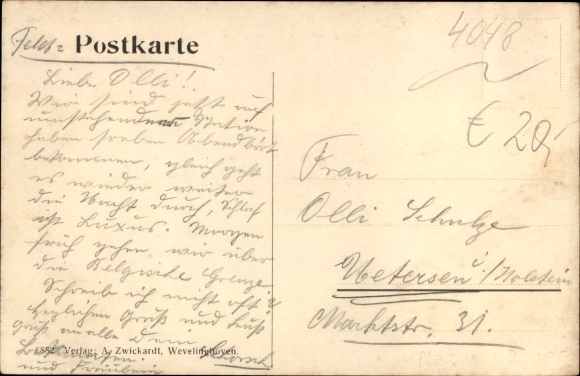 Feld= Postkarte
4048
€ 20,-
Liebe Olli!
Wir sind jetzt auf
umstehender Station
haben soeben Abendbrot
bekommen, gleich geht
es wieder weiter
die Nacht durch, Schlaf
ist Luxus. Morgen
früh gehen wir über
die Belgische Grenze.
Schreib ich nicht oft?
Herzlichen Gruß und Kuß
Gruß an alle Dein
und Fräulein
Frau
Olli Schulze
Uetersen i/Holstein
Marktstr. 31.
Verlag: A. Zwickardt, Wevelinghoven.